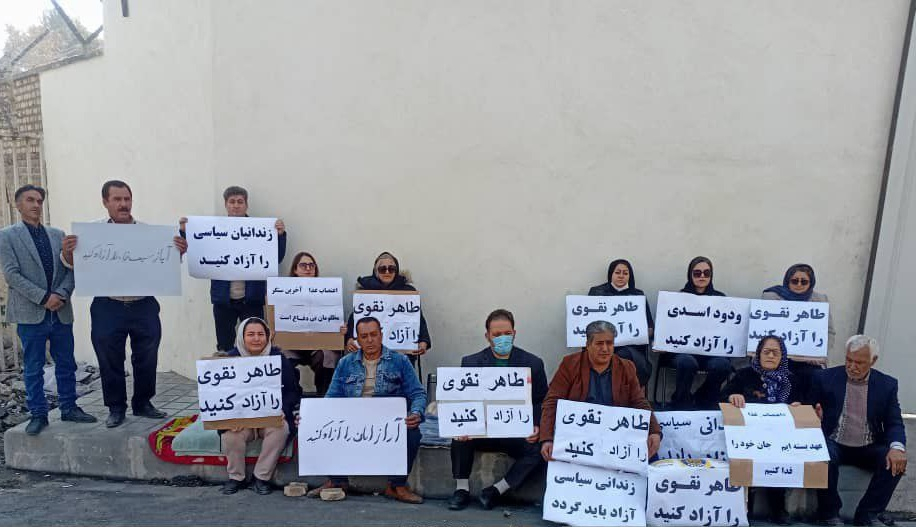 زندانیان سیاسی
را آزاد کنیــد
ایاز سیف‌خواه را آزاد کنید
اعتصاب غذا آخرین سنگر
مظلومان بی دفاع است
طاهر نقوی
را آزاد کنید
طاهر نقوی
را آزاد کنید
ودود اسدی
را آزاد کنید
طاهر نقوی
را آزاد کنید
طاهر نقوی
را آزاد کنید
آراز امان را آزاد کنید
طاهر نقوی
را آزاد کنید
طاهر نقوی
را آزاد کنید
زندانی سیاسی
آزاد باید گردد
زندانی سیاسی
آزاد باید
طاهر نقوی
را آزاد کنید
اعتصاب غذا
عهد بسته ایم جان خود را
فدا کنیم